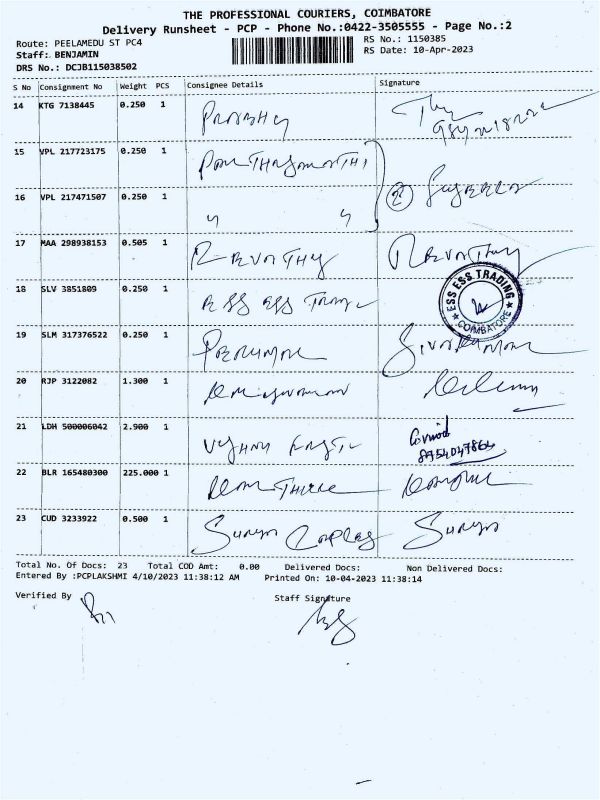 THE PROFESSIONAL COURIERS, COIMBATORE
Delivery Runsheet - PCP - Phone No.:0422-3505555 - Page No.:2
Route: PEELAMEDU ST PC4
RS No.: 1150385
Staff: BENJAMIN
RS Date: 10-Apr-2023
DRS No.: DCJB115038502
S No Consignment No Weight PCS Consignee Details Signature
14 KTG 7138445 0.250 1 PRABHU
15 VPL 217723175 0.250 1
16 VPL 217471507 0.250 1 " "
17 MAA 298938153 0.505 1 REVATHY REVATHY
18 SLV 3851809 0.250 1 ESS ESS
ESS ESS TRADING
COIMBATORE
19 SLM 317376522 0.250 1 PERUMAL
20 RJP 3122082 1.300 1
21 LDH 500006042 2.900 1 Govind
8754047864
22 BLR 165480300 225.000 1
23 CUD 3233922 0.500 1 Surya Surya
Total No. Of Docs: 23 Total COD Amt: 0.00 Delivered Docs: Non Delivered Docs:
Entered By :PCPLAKSHMI 4/10/2023 11:38:12 AM Printed On: 10-04-2023 11:38:14
Verified By Staff Signature